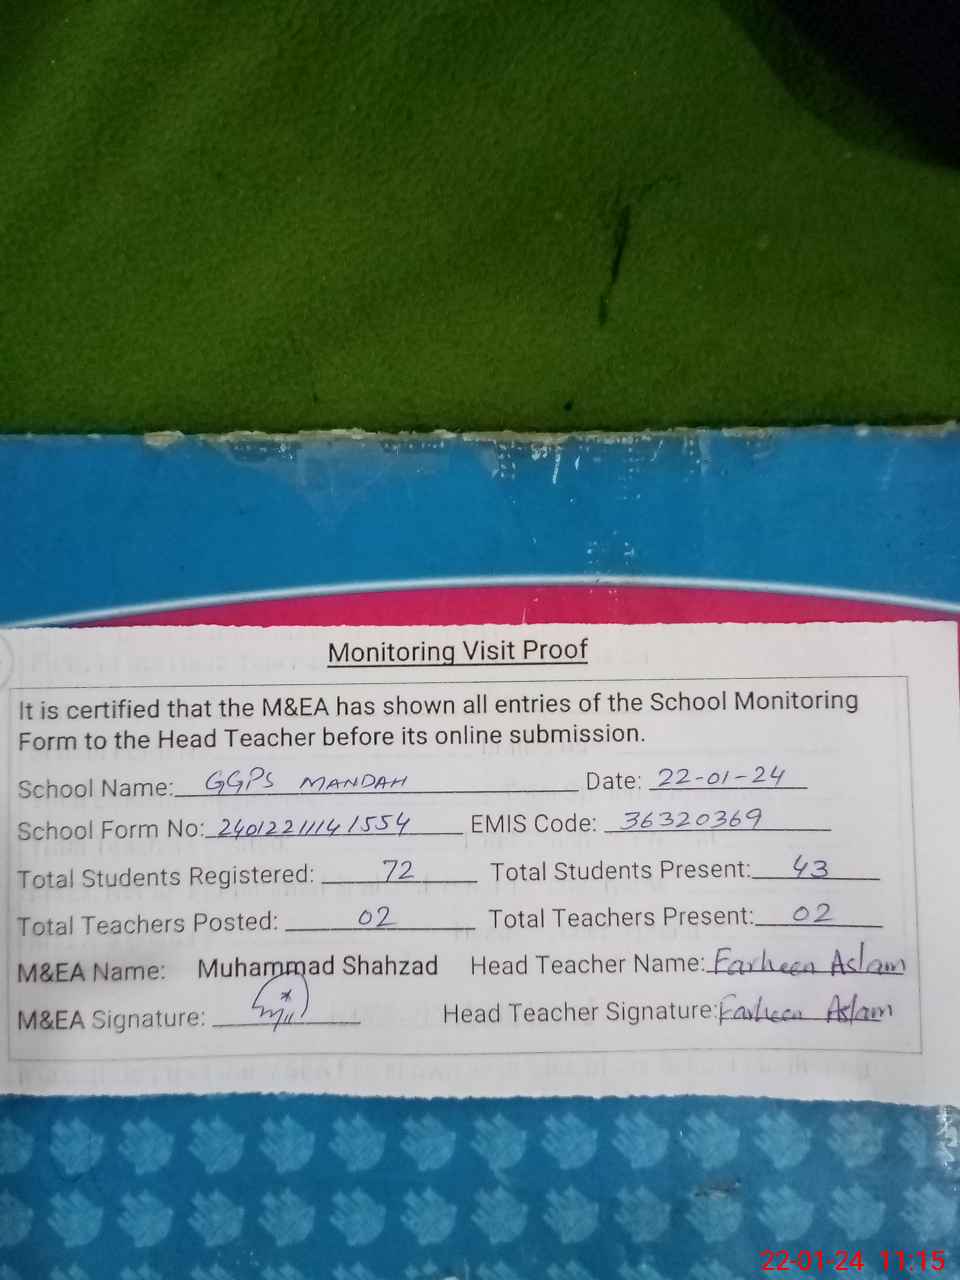 Monitoring Visit Proof
It is certified that the M&EA has shown all entries of the School Monitoring
Form to the Head Teacher before its online submission.
School Name: GGPS MANDAH Date: 22-01-24
School Form No: 24012211141554 EMIS Code: 36320369
Total Students Registered: 72 Total Students Present: 43
Total Teachers Posted: 02 Total Teachers Present: 02
M&EA Name: Muhammad Shahzad Head Teacher Name: Farheen Aslam
M&EA Signature: Head Teacher Signature: Farheen Aslam
22-01-24 11:15